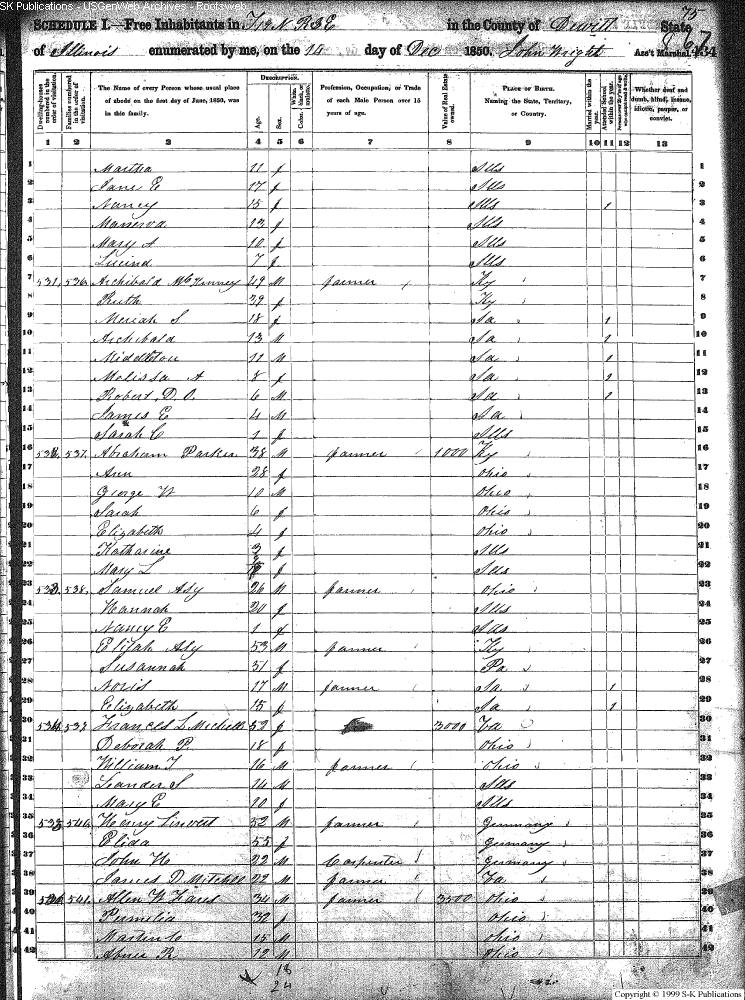 SK Publications - USGenWeb Archives - Rootsweb
75
SCHEDULE I.—Free Inhabitants in T19N R3E in the County of Dewitt State
of Illinois enumerated by me, on the 10 day of Dec 1850. John Wright Ass't Marshal.
Dwelling-houses numbered in the order of visitation.
Families numbered in the order of visitation.
The Name of every Person whose usual place of abode on the first day of June, 1850, was in this family.
Description.
Age.
Sex.
Color. White, black, or mulatto.
Profession, Occupation, or Trade of each Male Person over 15 years of age.
Value of Real Estate owned.
Place of Birth. Naming the State, Territory, or Country.
Married within the year.
Attended School within the year.
Persons over 20 y'rs of age who cannot read & write.
Whether deaf and dumb, blind, insane, idiotic, pauper, or convict.
1 2 3 4 5 6 7 8 9 10 11 12 13
1 Martha 11 f Ills 1
2 Jane E 17 f Ills 2
3 Nancy 15 f Ills 1 3
4 Manerva 13 f Ills 4
5 Mary A 10 f Ills 5
6 Lucind 7 f Ills 6
7 531 536 Archibald McKinney 49 M farmer Ky 7
8 Ruth 39 f Ky 8
9 Meriah S 18 f Ia 1 9
10 Archibald 13 M Ia 1 10
11 Middleton 11 M Ia 1 11
12 Melissa A 8 f Ia 1 12
13 Robert D. O. 6 M Ia 1 13
14 James E 4 M Ia 14
15 Sarah C 1 f Ills 15
16 532 537 Abraham Parker 38 M farmer 1000 Ky 16
17 Ann 28 f Ohio 17
18 George W 10 M Ohio 18
19 Sarah 6 f Ohio 19
20 Elizabeth 4 f Ohio 20
21 Katharine 3 f Ills 21
22 Mary L f Ills 22
23 533 538 Samuel Asy 26 M farmer Ohio 23
24 Hannah 20 f Ills 24
25 Nancy E 1 f Ills 25
26 Elijah Asy 53 M farmer Ky 26
27 Susannah 51 f Pa 27
28 Novis 17 M farmer Ia 1 28
29 Elizabeth 15 f Ia 1 29
30 534 539 Frances L Mitchell 52 f 3000 Va 30
31 Deborah P. 18 f Ohio 31
32 William T 16 M farmer Ohio 32
33 Leander S 14 M Ills 33
34 Mary E 10 f Ills 34
35 535 540 Henry 52 M farmer Germany 35
36 Elida 55 f Germany 36
37 John H 22 M Carpenter Germany 37
38 James D Mitchell 22 M farmer Va 38
39 541 Allen W 34 M farmer 3500 Ohio 39
40 Pumelia 32 f Ohio 40
41 15 M Ohio 41
42 Abner R 12 M Ohio 42
18
24
Copyright © 1999 S-K Publications